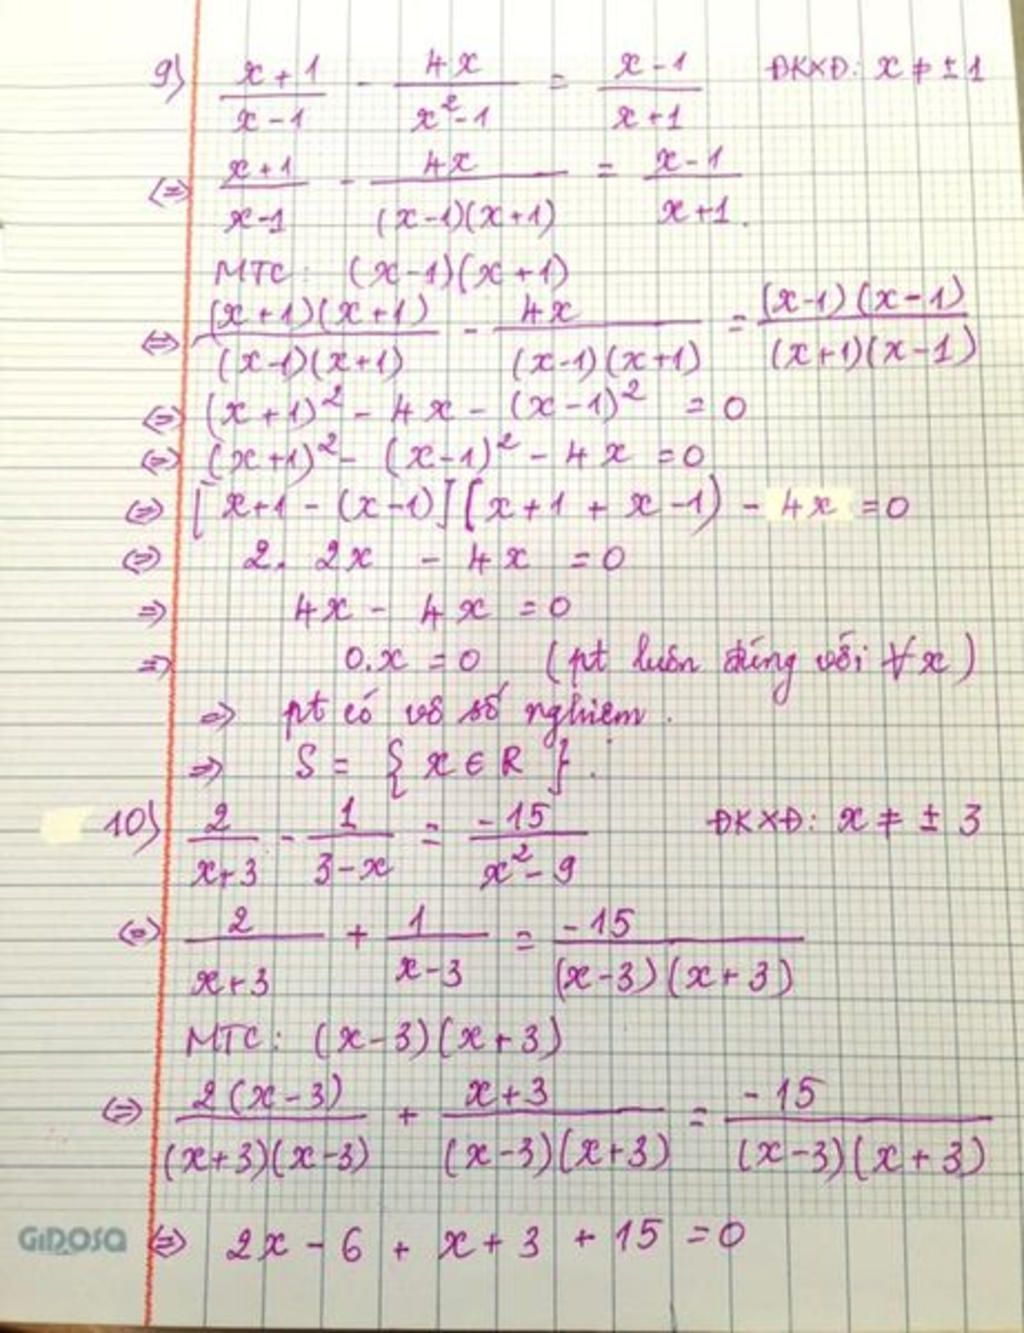 9) (x+1)/(x-1) - 4x/(x²-1) = (x-1)/(x+1) ĐKXĐ: x ≠ ±1
(=) (x+1)/(x-1) - 4x/((x-1)(x+1)) = (x-1)/(x+1).
MTC: (x-1)(x+1)
⇔ ((x+1)(x+1))/((x-1)(x+1)) - 4x/((x-1)(x+1)) = ((x-1)(x-1))/((x+1)(x-1))
⇔ (x+1)² - 4x - (x-1)² = 0
⇔ (x+1)² - (x-1)² - 4x = 0
⇔ [x+1 - (x-1)][x+1 + x-1) - 4x = 0
⇔ 2. 2x - 4x = 0
⇒ 4x - 4x = 0
⇒ 0.x = 0 (pt luôn đúng với ∀x)
⇒ pt có vô số nghiệm.
⇒ S = {x ∈ R}.
10) 2/(x+3) - 1/(3-x) = -15/(x²-9) ĐKXĐ: x ≠ ±3
⇔ 2/(x+3) + 1/(x-3) = -15/((x-3)(x+3))
MTC: (x-3)(x+3)
⇔ (2(x-3))/((x+3)(x-3)) + (x+3)/((x-3)(x+3)) = -15/((x-3)(x+3))
GIDOSA ⇔ 2x - 6 + x + 3 + 15 = 0